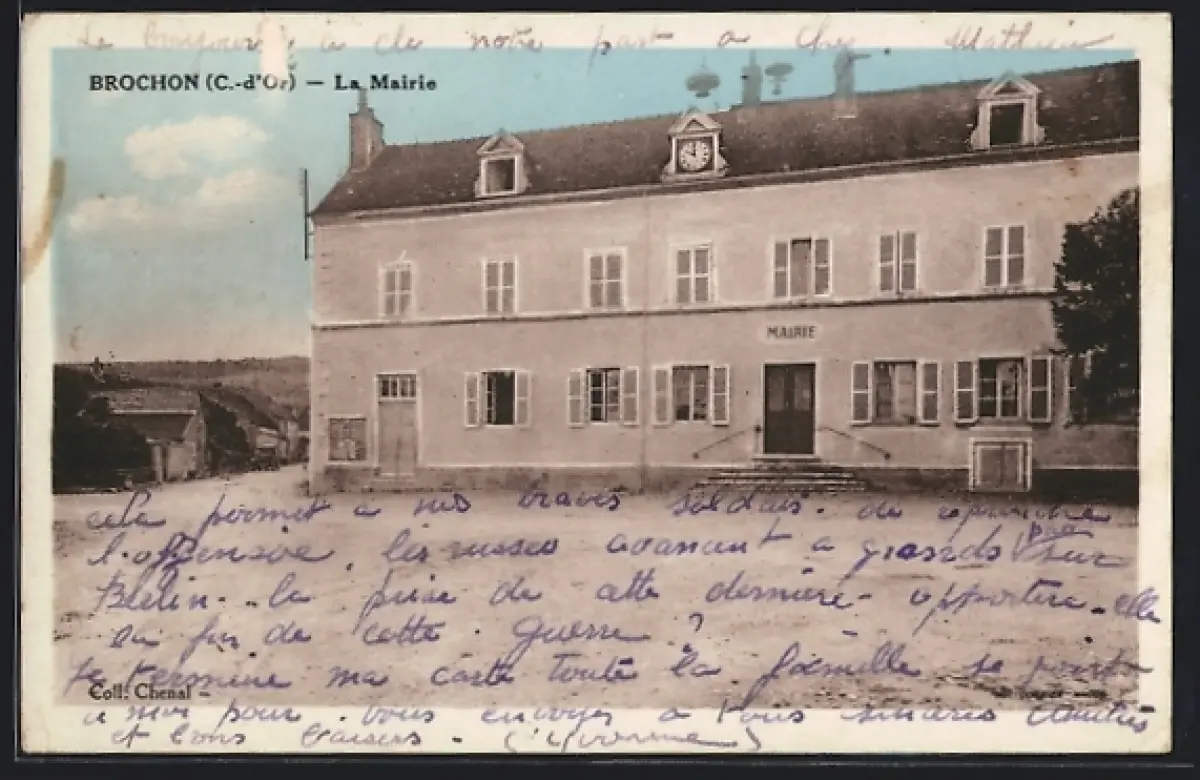 Le bonjour à de notre part a Cher Mathieu
BROCHON (C.-d'Or) — La Mairie
MAIRIE
cela permet à nos braves soldats. de reprendre
l'offensive. les russes avancent a grands pas sur
Berlin. la prise de cette dernière. apportera. elle
la fin de cette. guerre?
je termine ma carte toute la famille se joint
Coll. Chenal
a moi pour. vous envoyer a tous sincères amitiés
et bons baisers. (Yvonne)